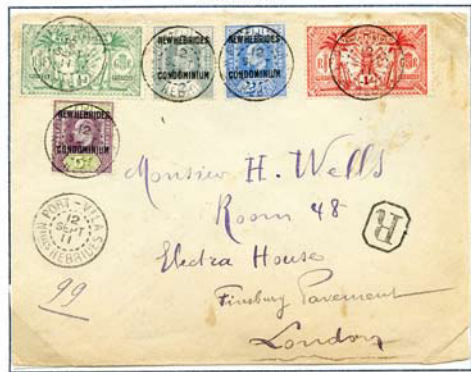 NEW HEBRIDES
CONDOMINIUM
NEW HEBRIDES
CONDOMINIUM
NEW HEBRIDES
CONDOMINIUM
PORT-VILA
12
SEPT
11
HEBRIDES
R
99
Monsieur H. Wells
Room 48
Electra House
Finsbury Pavement
London